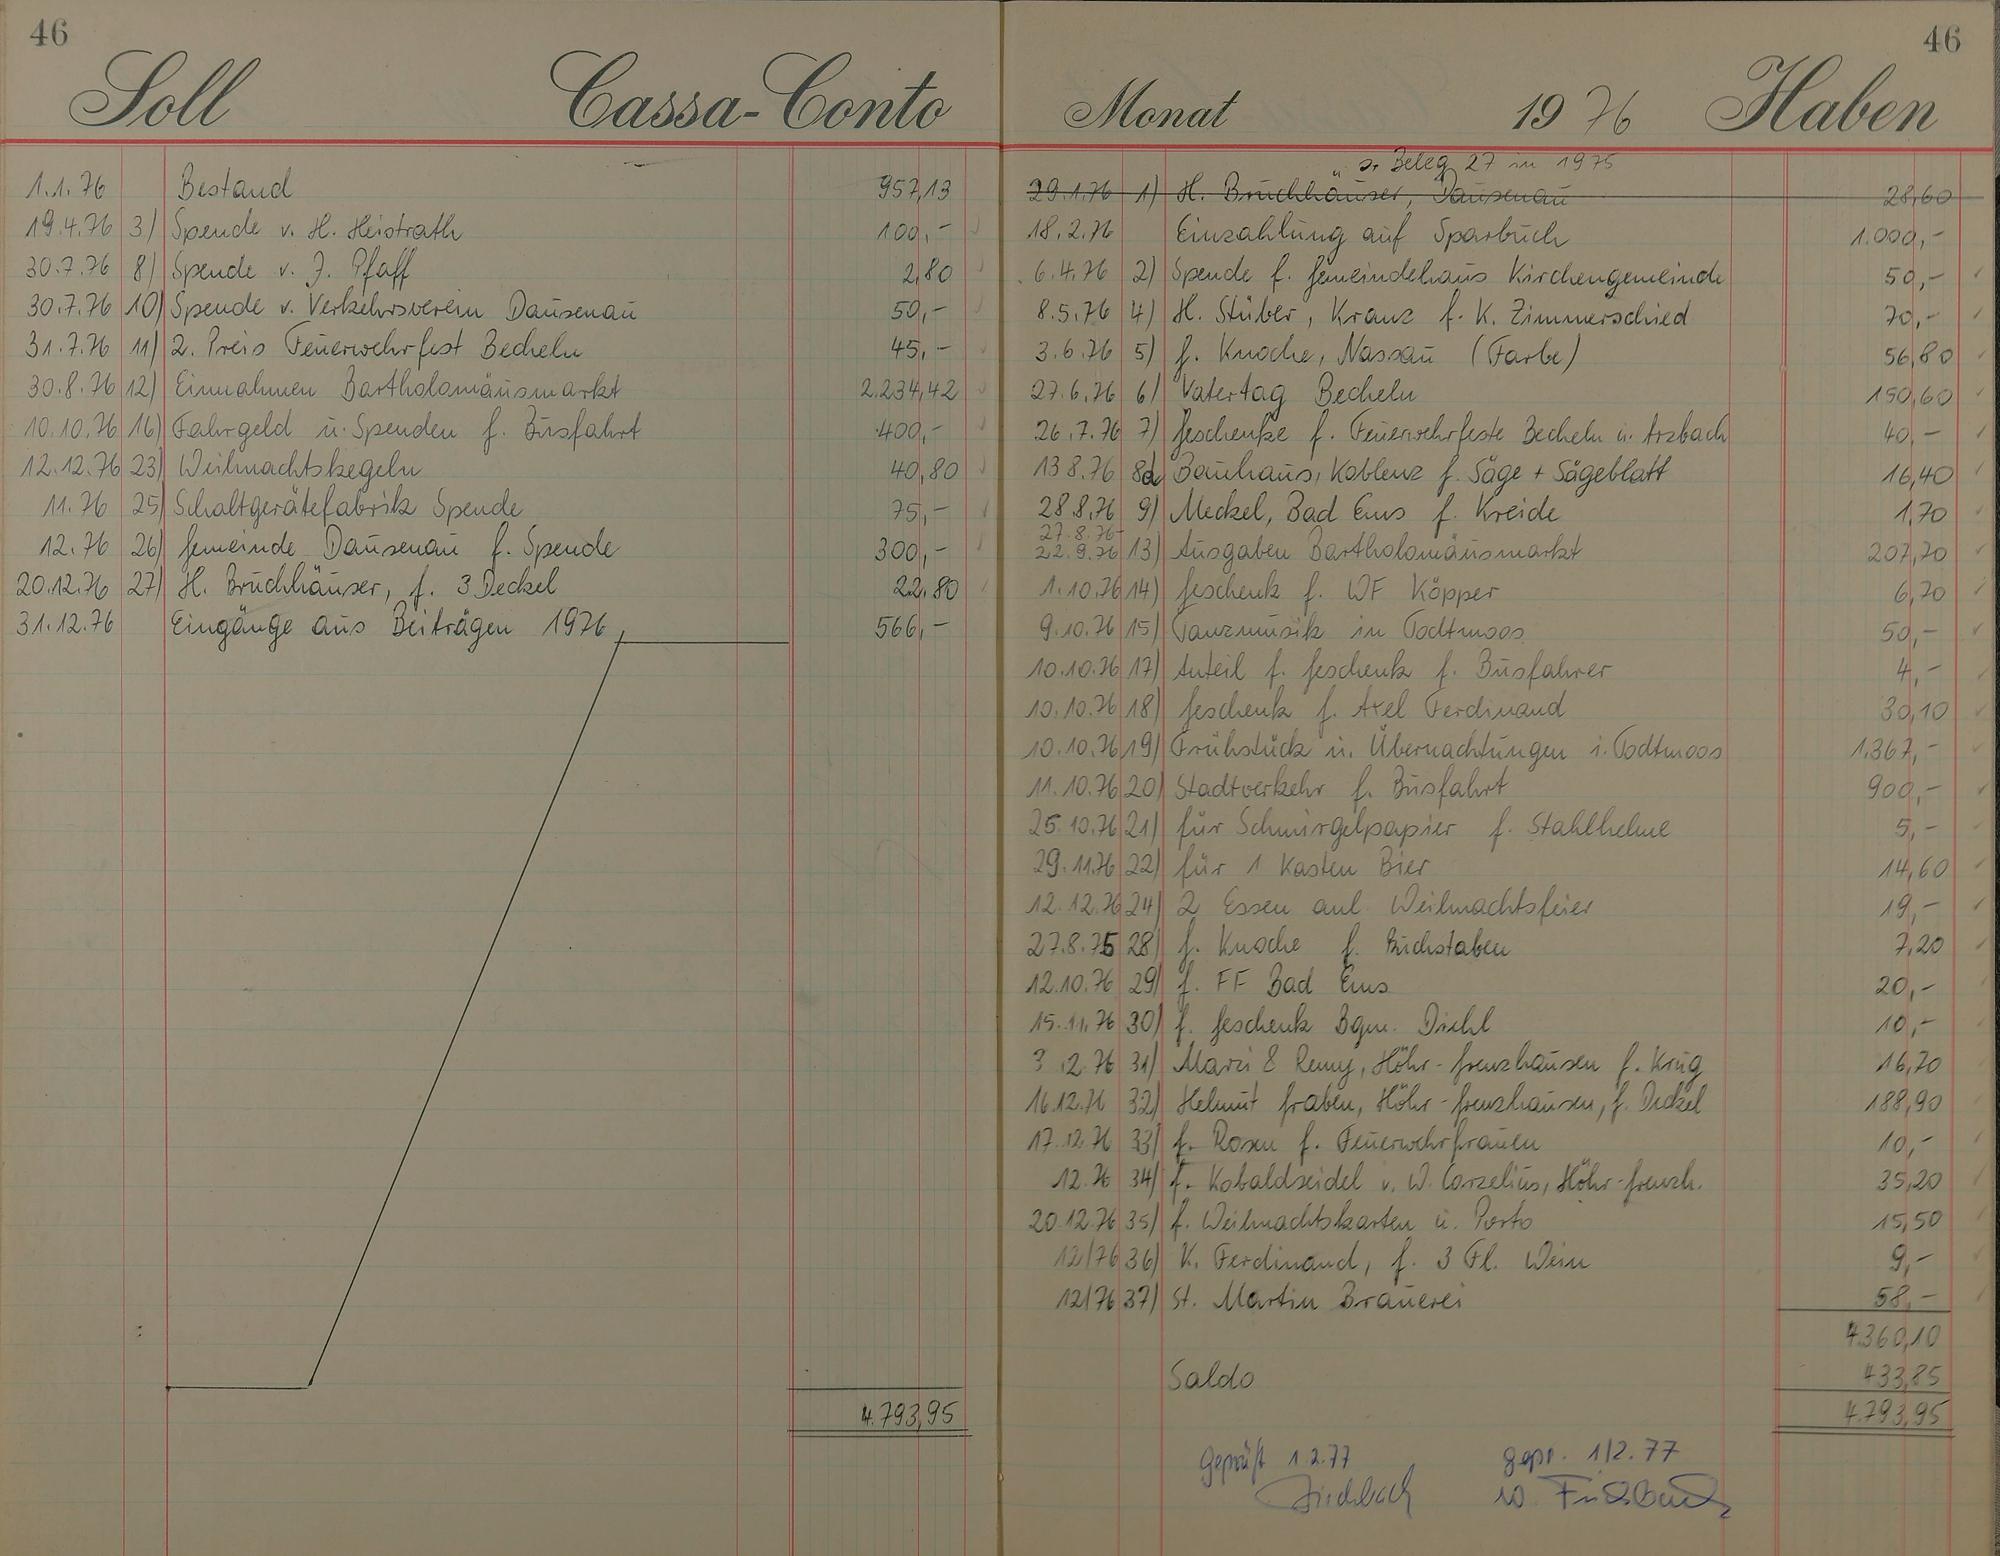 46
Soll Cassa-Conto
1.1.76 Bestand 957,13
19.4.76 3) Spende v. H. Heistrath 100,-
30.7.76 8) Spende v. J. Pfaff 2,80
30.7.76 10) Spende v. Verkehrsverein Dausenau 50,-
31.7.76 11) 2. Preis Feuerwehrfest Becheln 45,-
30.8.76 12) Einnahmen Bartholomäusmarkt 2.234,42
10.10.76 16) Fahrgeld u. Spenden f. Busfahrt 400,-
12.12.76 23) Weihnachtskegeln 40,80
11.76 25) Schaltgerätefabrik Spende 75,-
12.76 26) Gemeinde Dausenau f. Spende 300,-
20.12.76 27) H. Bruchhäuser, f. 3 Deckel 22,80
31.12.76 Eingänge aus Beiträgen 1976 566,-
4.793,95
46
Monat 1976 Haben
s. Beleg 27 in 1975
29.1.76 1) H. Bruchhäuser, Dausenau 28,60
18.2.76 Einzahlung auf Sparbuch 1.000,-
6.4.76 2) Spende f. Gemeindehaus Kirchengemeinde 50,-
8.5.76 4) H. Stüber, Kranz f. K. Zimmerschied 70,-
3.6.76 5) G. Knoche, Nassau (Farbe) 56,80
27.6.76 6) Vatertag Becheln 150,60
26.7.76 7) Geschenke f. Feuerwehrfeste Becheln u. Arzbach 40,-
13.8.76 8a Bauhaus, Koblenz f. Säge + Sägeblatt 16,40
28.8.76 9) Meckel, Bad Ems f. Kreide 1,70
27.8.76-
22.9.76 13) Ausgaben Bartholomäusmarkt 207,70
1.10.76 14) Geschenk f. WF Köpper 6,70
9.10.76 15) Tanzmusik in Todtmoos 50,-
10.10.76 17) Anteil f. Geschenk f. Busfahrer 4,-
10.10.76 18) Geschenk f. Axel Ferdinand 30,10
10.10.76 19) Frühstück u. Übernachtungen i. Todtmoos 1.367,-
11.10.76 20) Stadtverkehr f. Busfahrt 900,-
25.10.76 21) für Schmirgelpapier f. Stahlhelme 5,-
29.11.76 22) für 1 Kasten Bier 14,60
12.12.76 24) 2 Essen anl. Weihnachtsfeier 19,-
27.8.75 28) G. Knoche f. Buchstaben 7,20
12.10.76 29) f. FF Bad Ems 20,-
15.11.76 30) f. Geschenk Bgm. Diehl 10,-
3.12.76 31) Marzi & Remy, Höhr-Grenzhausen f. Krug 16,70
16.12.76 32) Helmut Graben, Höhr-Grenzhausen, f. Deckel 188,90
17.12.76 33) f. Rosen f. Feuerwehrfrauen 10,-
12.76 34) f. Kobaldseidel v. W. Corzelius, Höhr-Grenzh. 35,20
20.12.76 35) f. Weihnachtskarten u. Porto 15,50
12/76 36) K. Ferdinand, f. 3 Fl. Wein 9,-
12/76 37) St. Martin Brauerei 58,-
4.360,10
Saldo 433,85
4.793,95
geprüft 1.2.77 gepr. 1/2.77